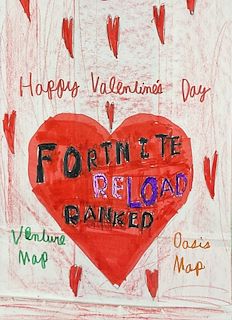 Happy Valentine's Day
FORTNITE
RELOAD
RANKED
Venture
Map
Oasis
Map